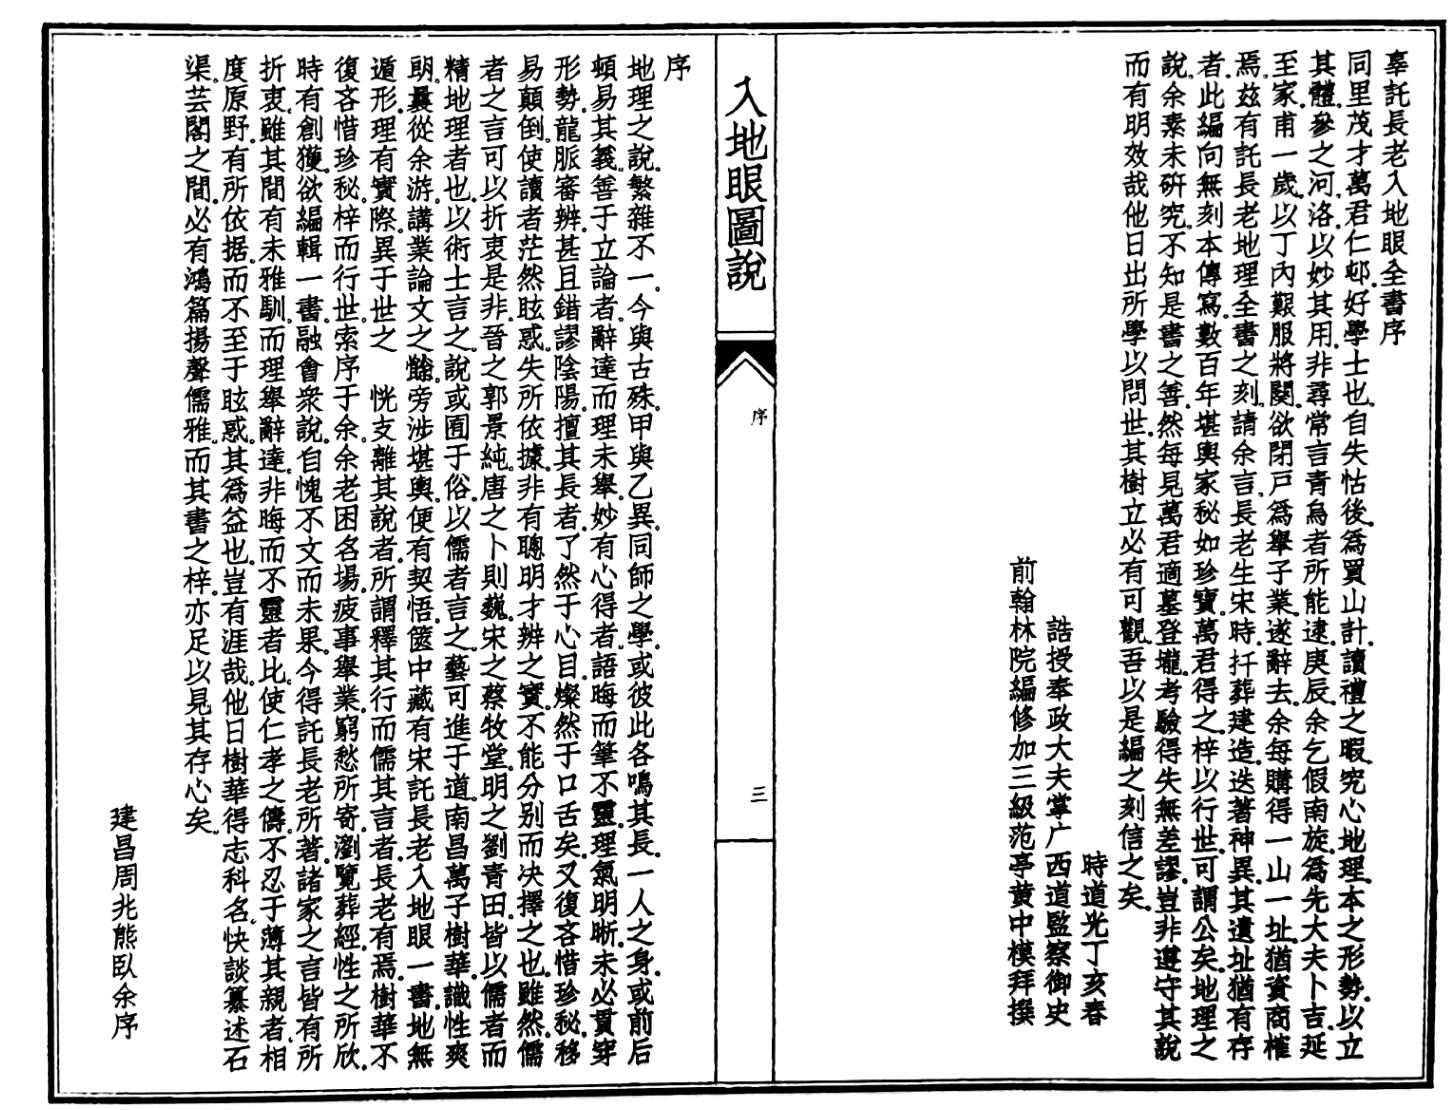 辜託長老入地眼全書序
同里茂才萬君仁邨。好學士也。自失怙後。為買山計。讀禮之暇。究心地理。本之形勢。以立
其體。參之河洛。以妙其用。非尋常言青烏者所能逮。庚辰余乞假南旋。為先大夫卜吉。延
至家甫一歲。以丁內艱服將闋。欲閉戶為舉子業。遂辭去。余每購得一山一址。猶資商榷
焉。玆有託長老地理全書之刻。請余言。長老生宋時。扦葬建造。迭著神異。其遺址猶有存
者。此編向無刻本。傳寫數百年。堪輿家秘如珍寶。萬君得之。梓以行世。可謂公矣。地理之
說。余素未研究。不知是書之善。然每見萬君適墓登壠。考驗得失無差謬。豈非遵守其說
而有明效哉。他日出所學以問世。其樹立必有可觀。吾以是編之刻信之矣。
時道光丁亥春
誥授奉政大夫掌广西道監察御史
前翰林院編修加三級范亭黃中模拜撰
入地眼圖說
序
三
序
地理之說。繁雜不一。今與古殊。甲與乙異。同師之學。或彼此各鳴其長。一人之身。或前后
頓易其義。善于立論者。辭達而理未舉。妙有心得者。語晦而筆不靈。理氣明晰。未必貫穿
形勢。龍脈審辨。甚且錯謬陰陽。擅其長者。了然于心目。燦然于口舌矣。又復吝惜珍秘。移
易顛倒。使讀者茫然眩惑。失所依據。非有聰明才辨之實。不能分別而決擇之也。雖然。儒
者之言。可以折衷是非。晉之郭景純。唐之卜則巍。宋之蔡牧堂。明之劉青田。皆以儒者而
精地理者也。以術士言之。說或囿于俗。以儒者言之。藝可進于道。南昌萬子樹華。識性爽
朗。曩從余游。講業論文之餘。旁涉堪輿。便有契悟。篋中藏有宋託長老入地眼一書。地無
遁形。理有實際。異于世之　恍支離其說者。所謂釋其行而儒其言者。長老有焉。樹華不
復吝惜珍秘。梓而行世。索序于余。余老困名場。疲事舉業。窮愁所寄。瀏覽葬經。性之所欣。
時有創獲。欲編輯一書。融會眾說。自愧不文而未果。今得託長老所著。諸家之言。皆有所
折衷。雖其間有未雅馴。而理舉辭達。非晦而不靈者比。使仁孝之儔。不忍于薄其親者。相
度原野。有所依据。而不至于眩惑。其為益也。豈有涯哉。他日樹華得志科名。快談纂述。石
渠芸閣之間。必有鴻篇揚聲儒雅。而其書之梓。亦足以見其存心矣。
建昌周兆熊臥余序